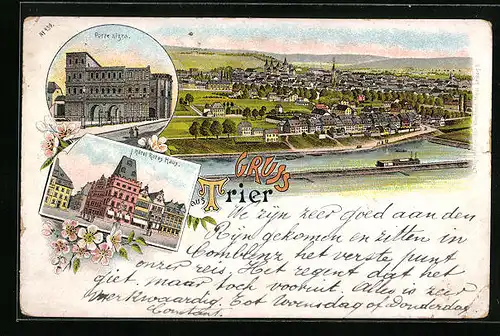 Porte nigra.
Hôtel Rotes Haus.
Gruss
aus Trier
We zijn zeer goed aan den
Rijn gekomen en zitten in
Comblenz het verste punt
onzer reis. Het regent dat het
giet, maar toch vooruit. Alles is zeer
merkwaardig. Tot Woensdag of Donderdag
Constant.